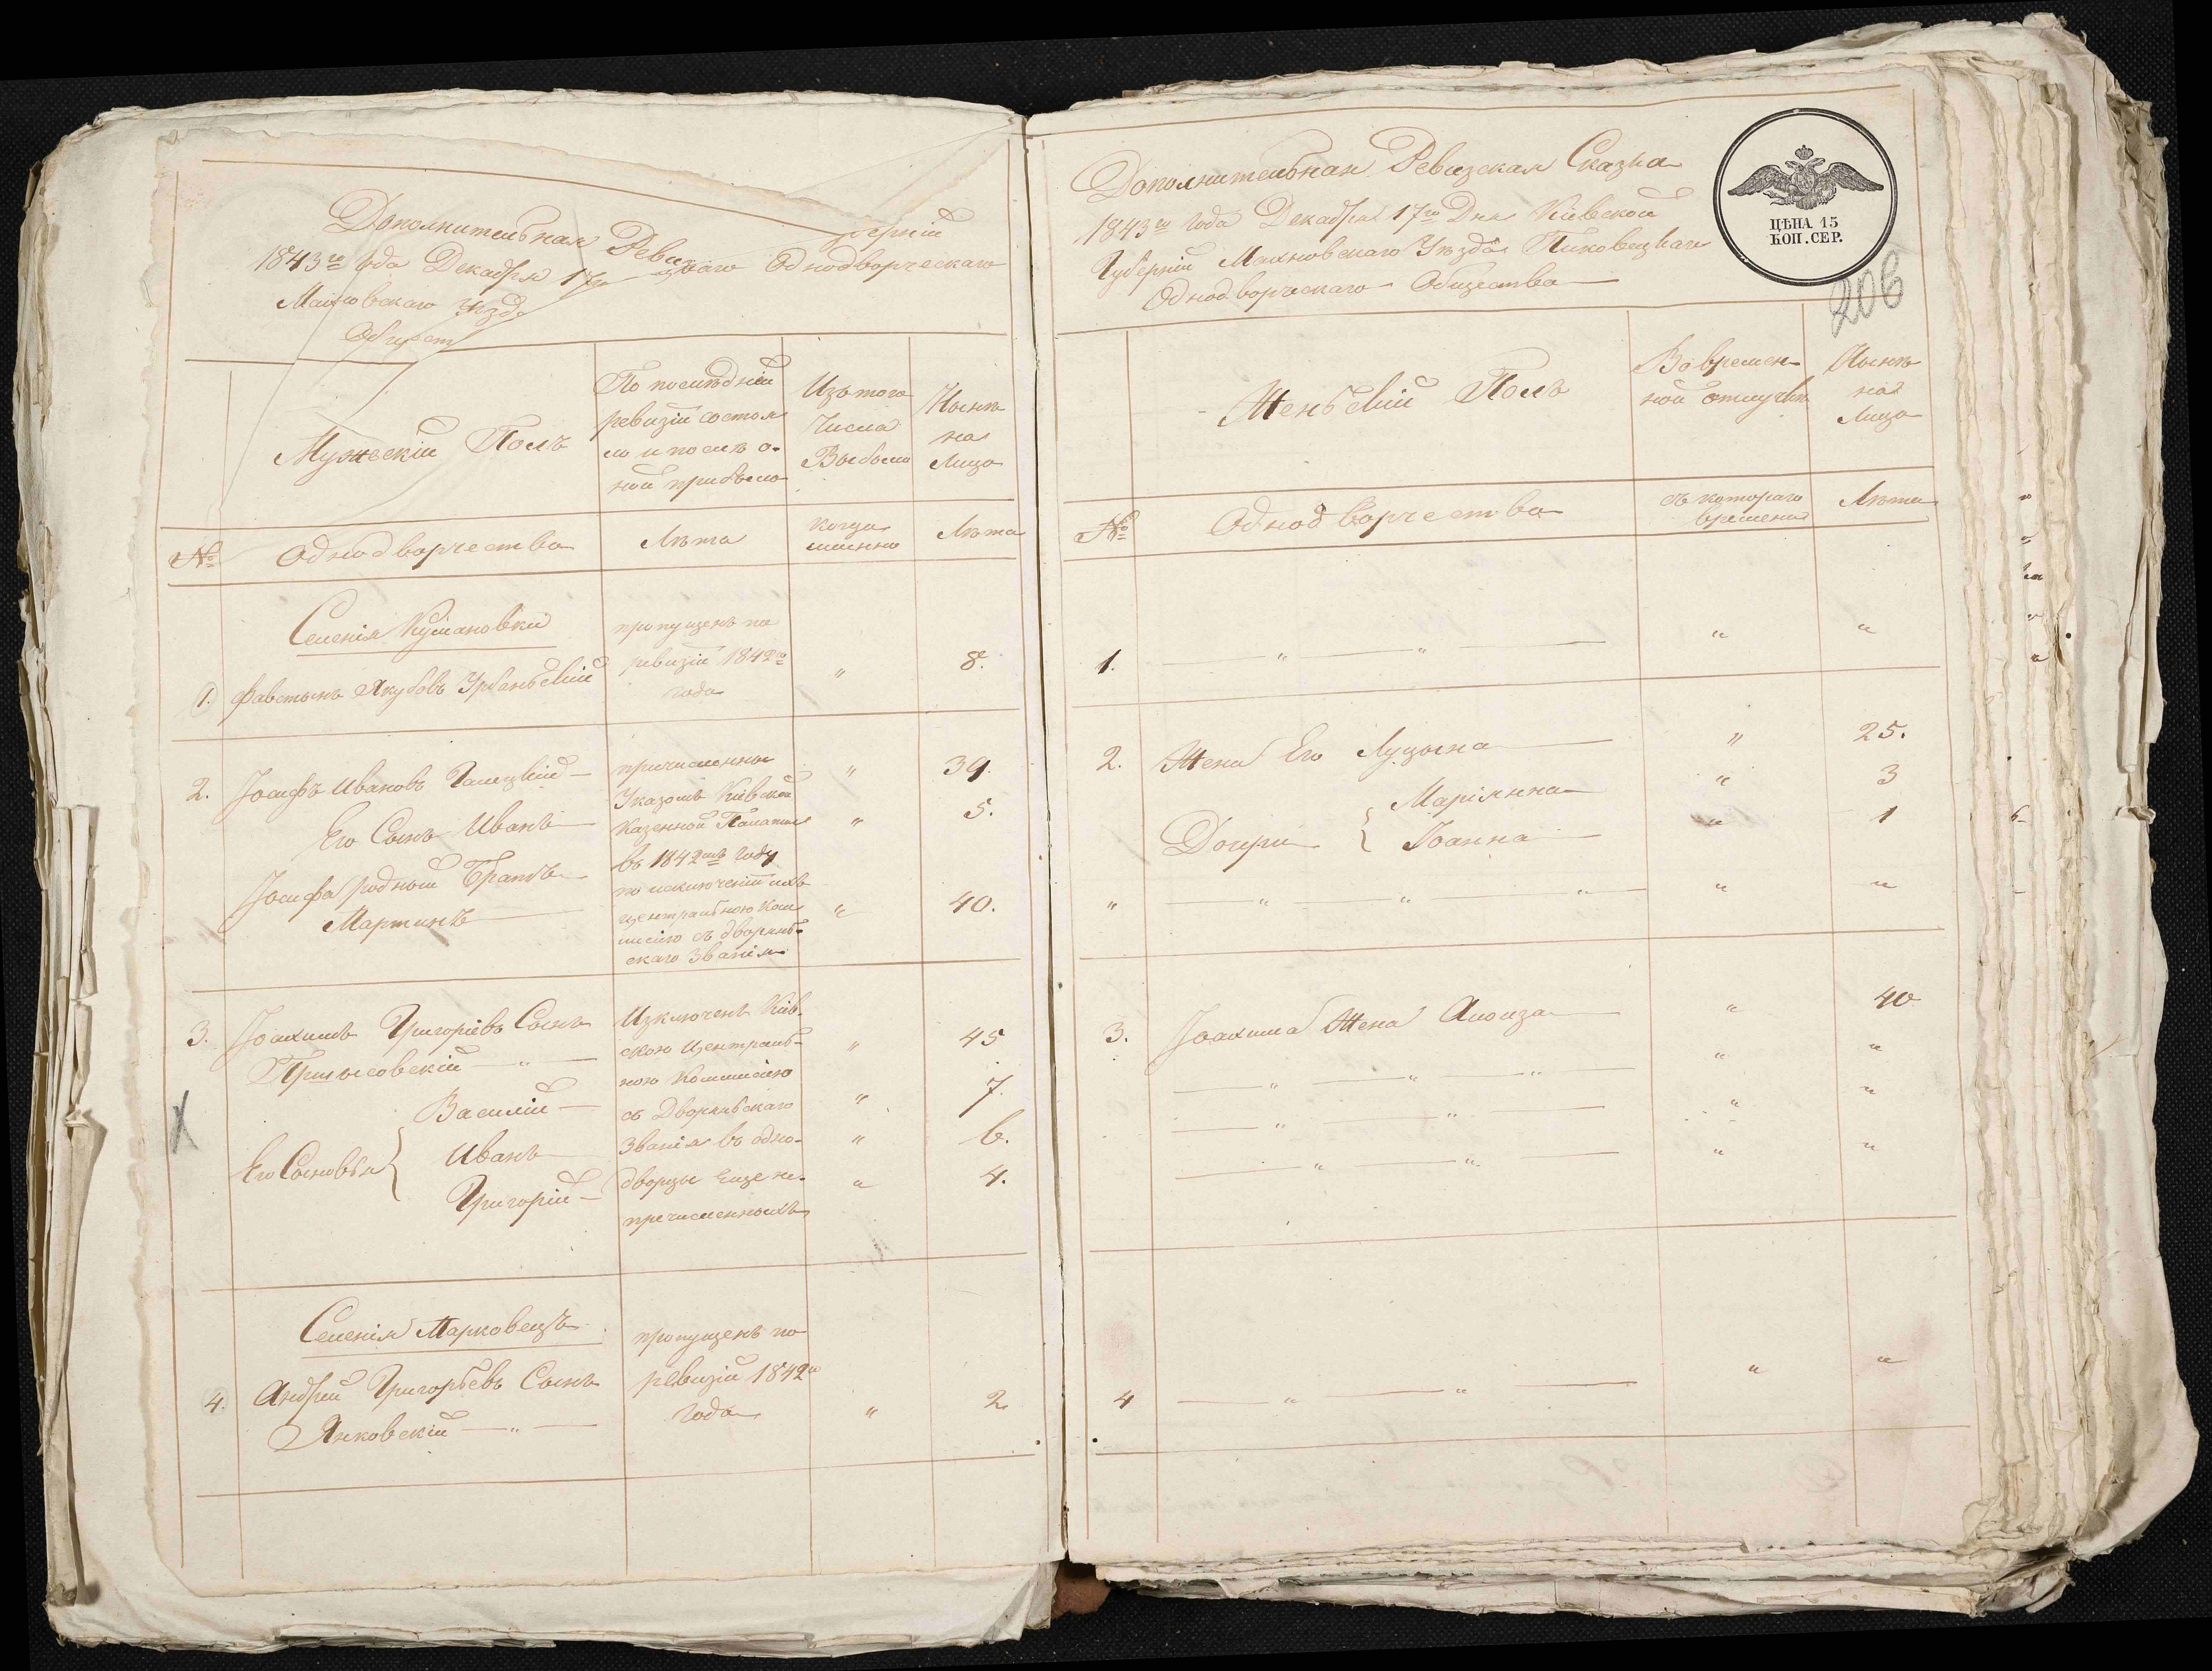 Дополнительная Реви
берніи
1843го года Декабря 17го
цкаго Однодворческаго
Махновскаго Уѣзда
Общест
Мужескій Полъ
По послѣдній
ревизіи состоя
ло и послѣ о-
ной прибыло
Изъ того
Числа
Выбыло
Нынѣ
на
Лицо
№
Однодворчества
Лѣта
когда
именно
Лѣта
Селенія Кумановки
1. Фавстынъ Якубовъ Урбанскій
пропущенъ по
ревизіи 1842го
года
"
8.
2. Іосифъ Ивановъ Галецкій
Его Сынъ Иванъ
Іосифа родный Братъ
Мартинъ
причисленны
Указомъ Кіевской
Казенной Палаты
въ 1842мъ году
по исключеніи ихъ
центральною Ком
мисіею съ дворянь-
скаго Званія
"
39.
"
5.
"
40.
3. Іоахимъ Григоріевъ Сынъ
Прилысовскій "
Его Сыновья { Василій
Иванъ
Григорій
Изключенъ Кіев-
скою Централь-
ною Коммисіею
съ Дворянскаго
Званія въ одно-
дворцы Еще не-
пречисленныхъ
"
45
"
7.
"
6.
"
4.
Селенія Марковецъ
4. Андрей Григорьевъ Сынъ
Янковскій "
пропущенъ по
ревизіи 1842го
года
"
2
Дополнительная Ревизская Сказка
1843го года Декабря 17го Дня Кіевской
Губерніи Махновскаго Уѣзда Пиковецкаго
Однодворческаго Общества
ЦѢНА 15
КОП. СЕР.
206
Женьскій Полъ
Во времен-
ной отлучкѣ
Нынѣ
на
Лицо
№
Однодворчества
съ котораго
времени
Лѣта
1. " " " "
2. Жена Его Луцына " 25.
Дочери { Маріянна " 3
Іоанна " 1
" " " " " "
3. Іоахима Жена Алоиза " 40
" " " " "
" " " "
" " " "
4 " " " "